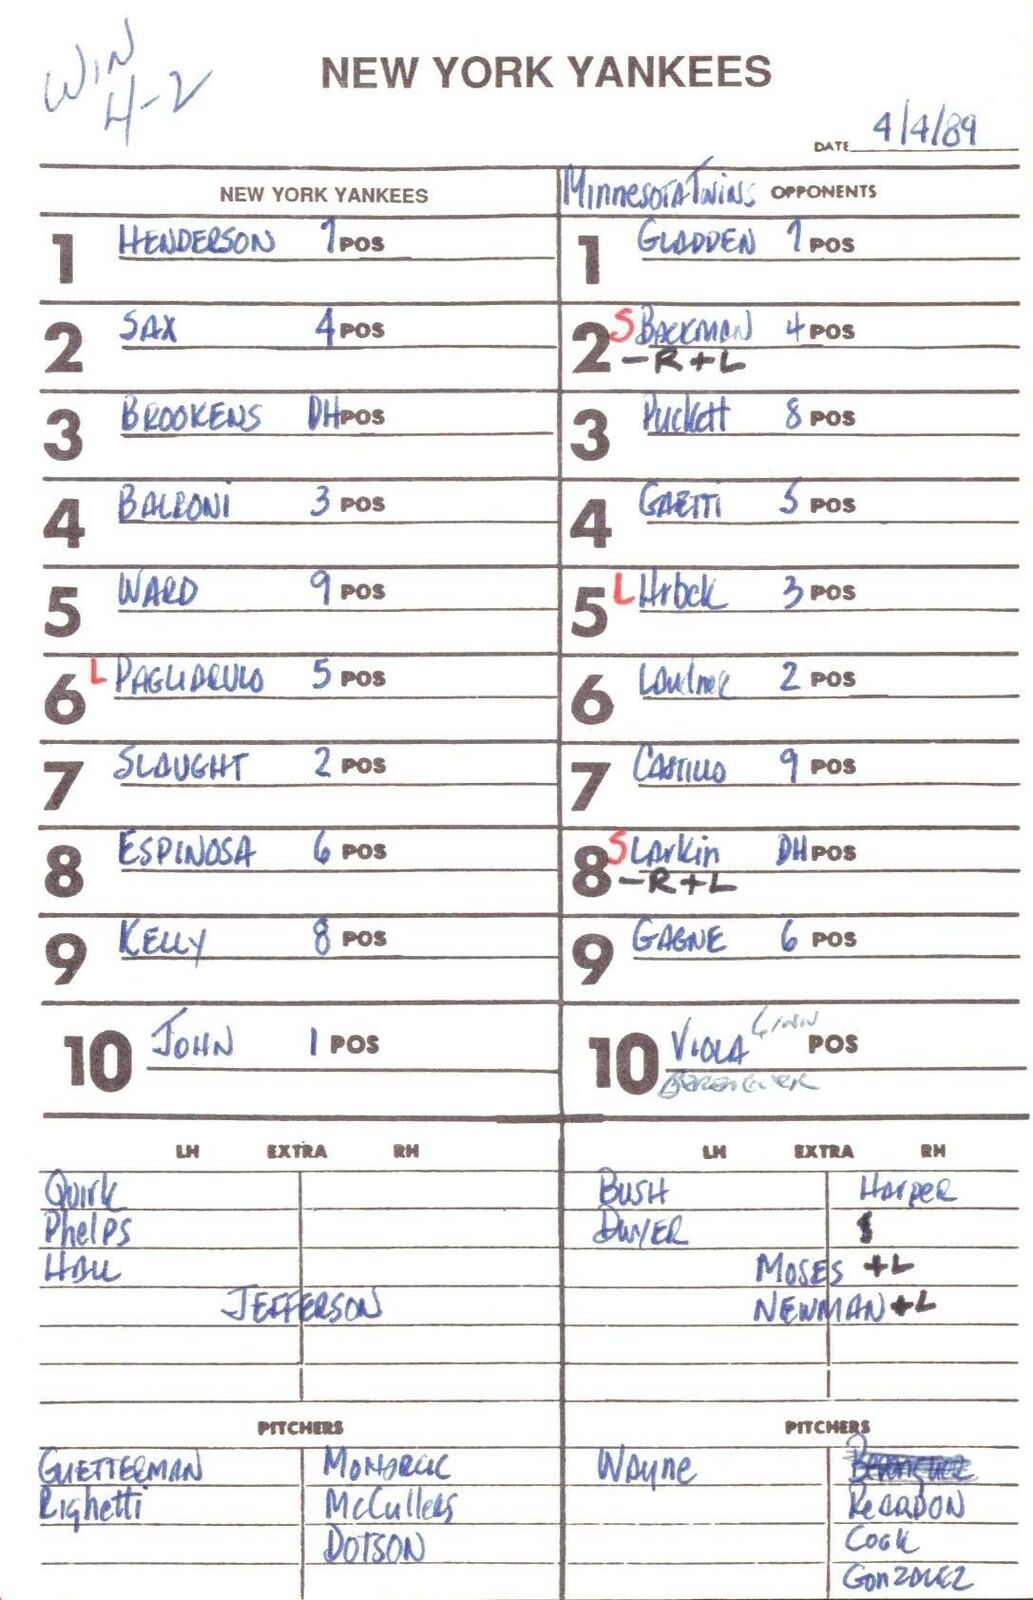 WIN
4-2
NEW YORK YANKEES
DATE 4/4/89
NEW YORK YANKEES
Minnesota Twins OPPONENTS
1 HENDERSON 7 POS
1 GLADDEN 7 POS
2 SAX 4 POS
2 S BACKMAN 4 POS
- R + L
3 BROOKENS DH POS
3 Puckett 8 POS
4 BALBONI 3 POS
4 GAETTI 5 POS
5 WARD 9 POS
5 L Hrbek 3 POS
6 L PAGLIARULO 5 POS
6 Laudner 2 POS
7 SLAUGHT 2 POS
7 CASTILLO 9 POS
8 ESPINOSA 6 POS
8 S Larkin DH POS
- R + L
9 KELLY 8 POS
9 GAGNE 6 POS
10 JOHN 1 POS
10 VIOLA POS
BERENGUER
LH EXTRA RH
LH EXTRA RH
Quirk
Phelps
HALL
JEFFERSON
BUSH Harper
DWYER
MOSES + L
NEWMAN + L
PITCHERS
PITCHERS
GUETTERMAN MOHORCIC
Righetti McCullers
DOTSON
Wayne Berenguer
REARDON
COOK
GONZALEZ